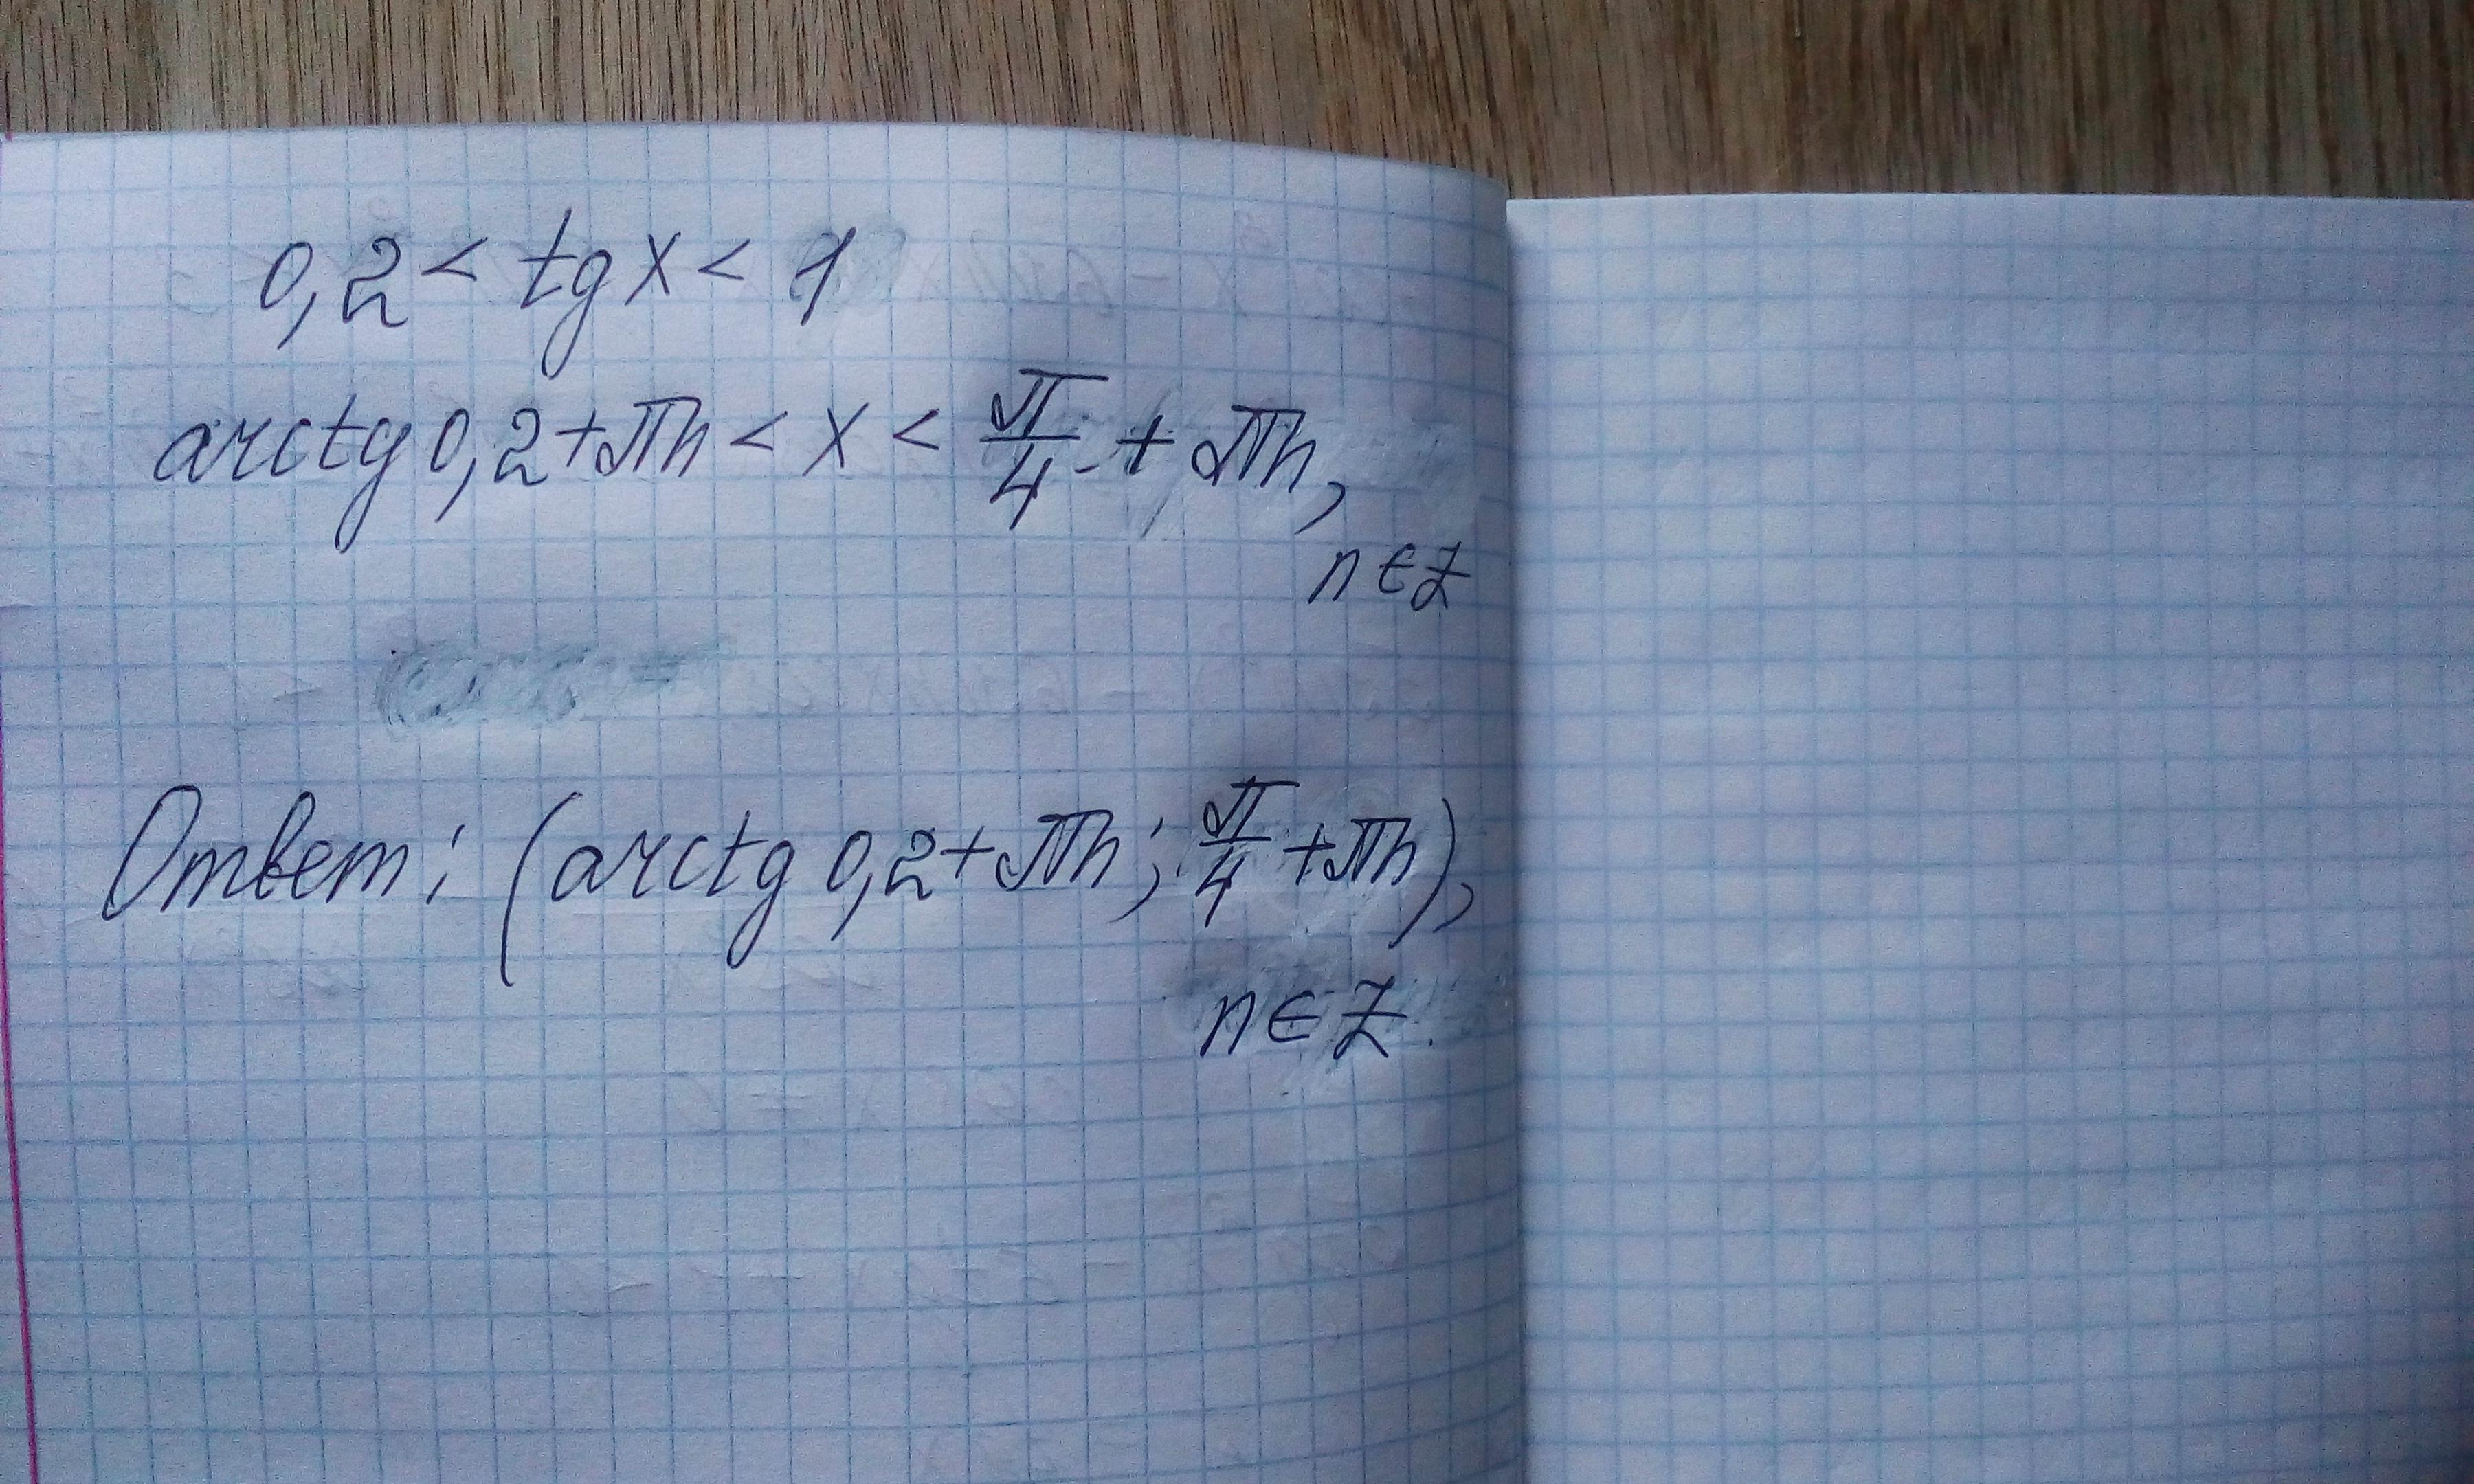 0,2 < tg x < 1
arctg 0,2 + πn < x < π/4 + πn,
n ∈ Z
Ответ: (arctg 0,2 + πn; π/4 + πn),
n ∈ Z.